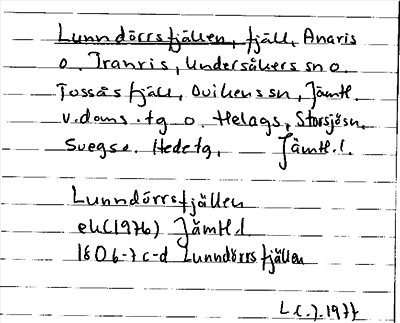 Lunndörrsfjällen, fjäll, Anaris
o. Tranris, Undersåkers sn o.
Fossås fjäll, Ovikens sn, Jämtl.
v. doms. tg o. Helags, Storsjö sn,
Svegs e. Hede tg, Jämtl. l.
Lunndörrsfjällen
ek (1976) Jämtl l
18 D 6-7 c-d Lunndörrsfjällen
1977